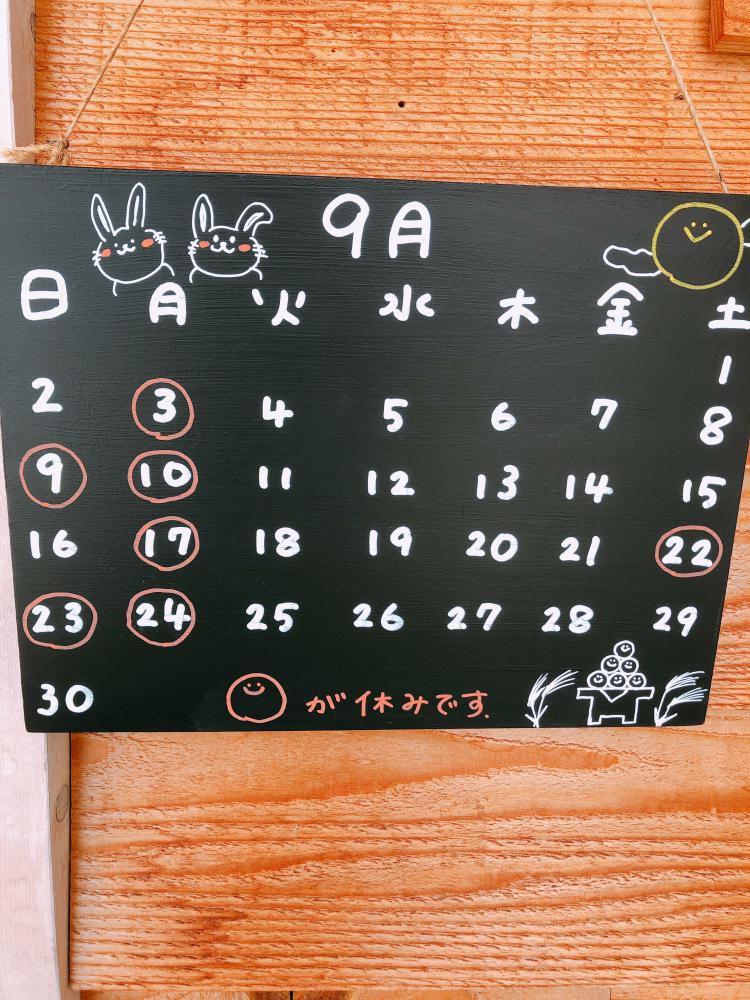 9月
日 月 火 水 木 金 土
1
2 3 4 5 6 7 8
9 10 11 12 13 14 15
16 17 18 19 20 21 22
23 24 25 26 27 28 29
30
が休みです.